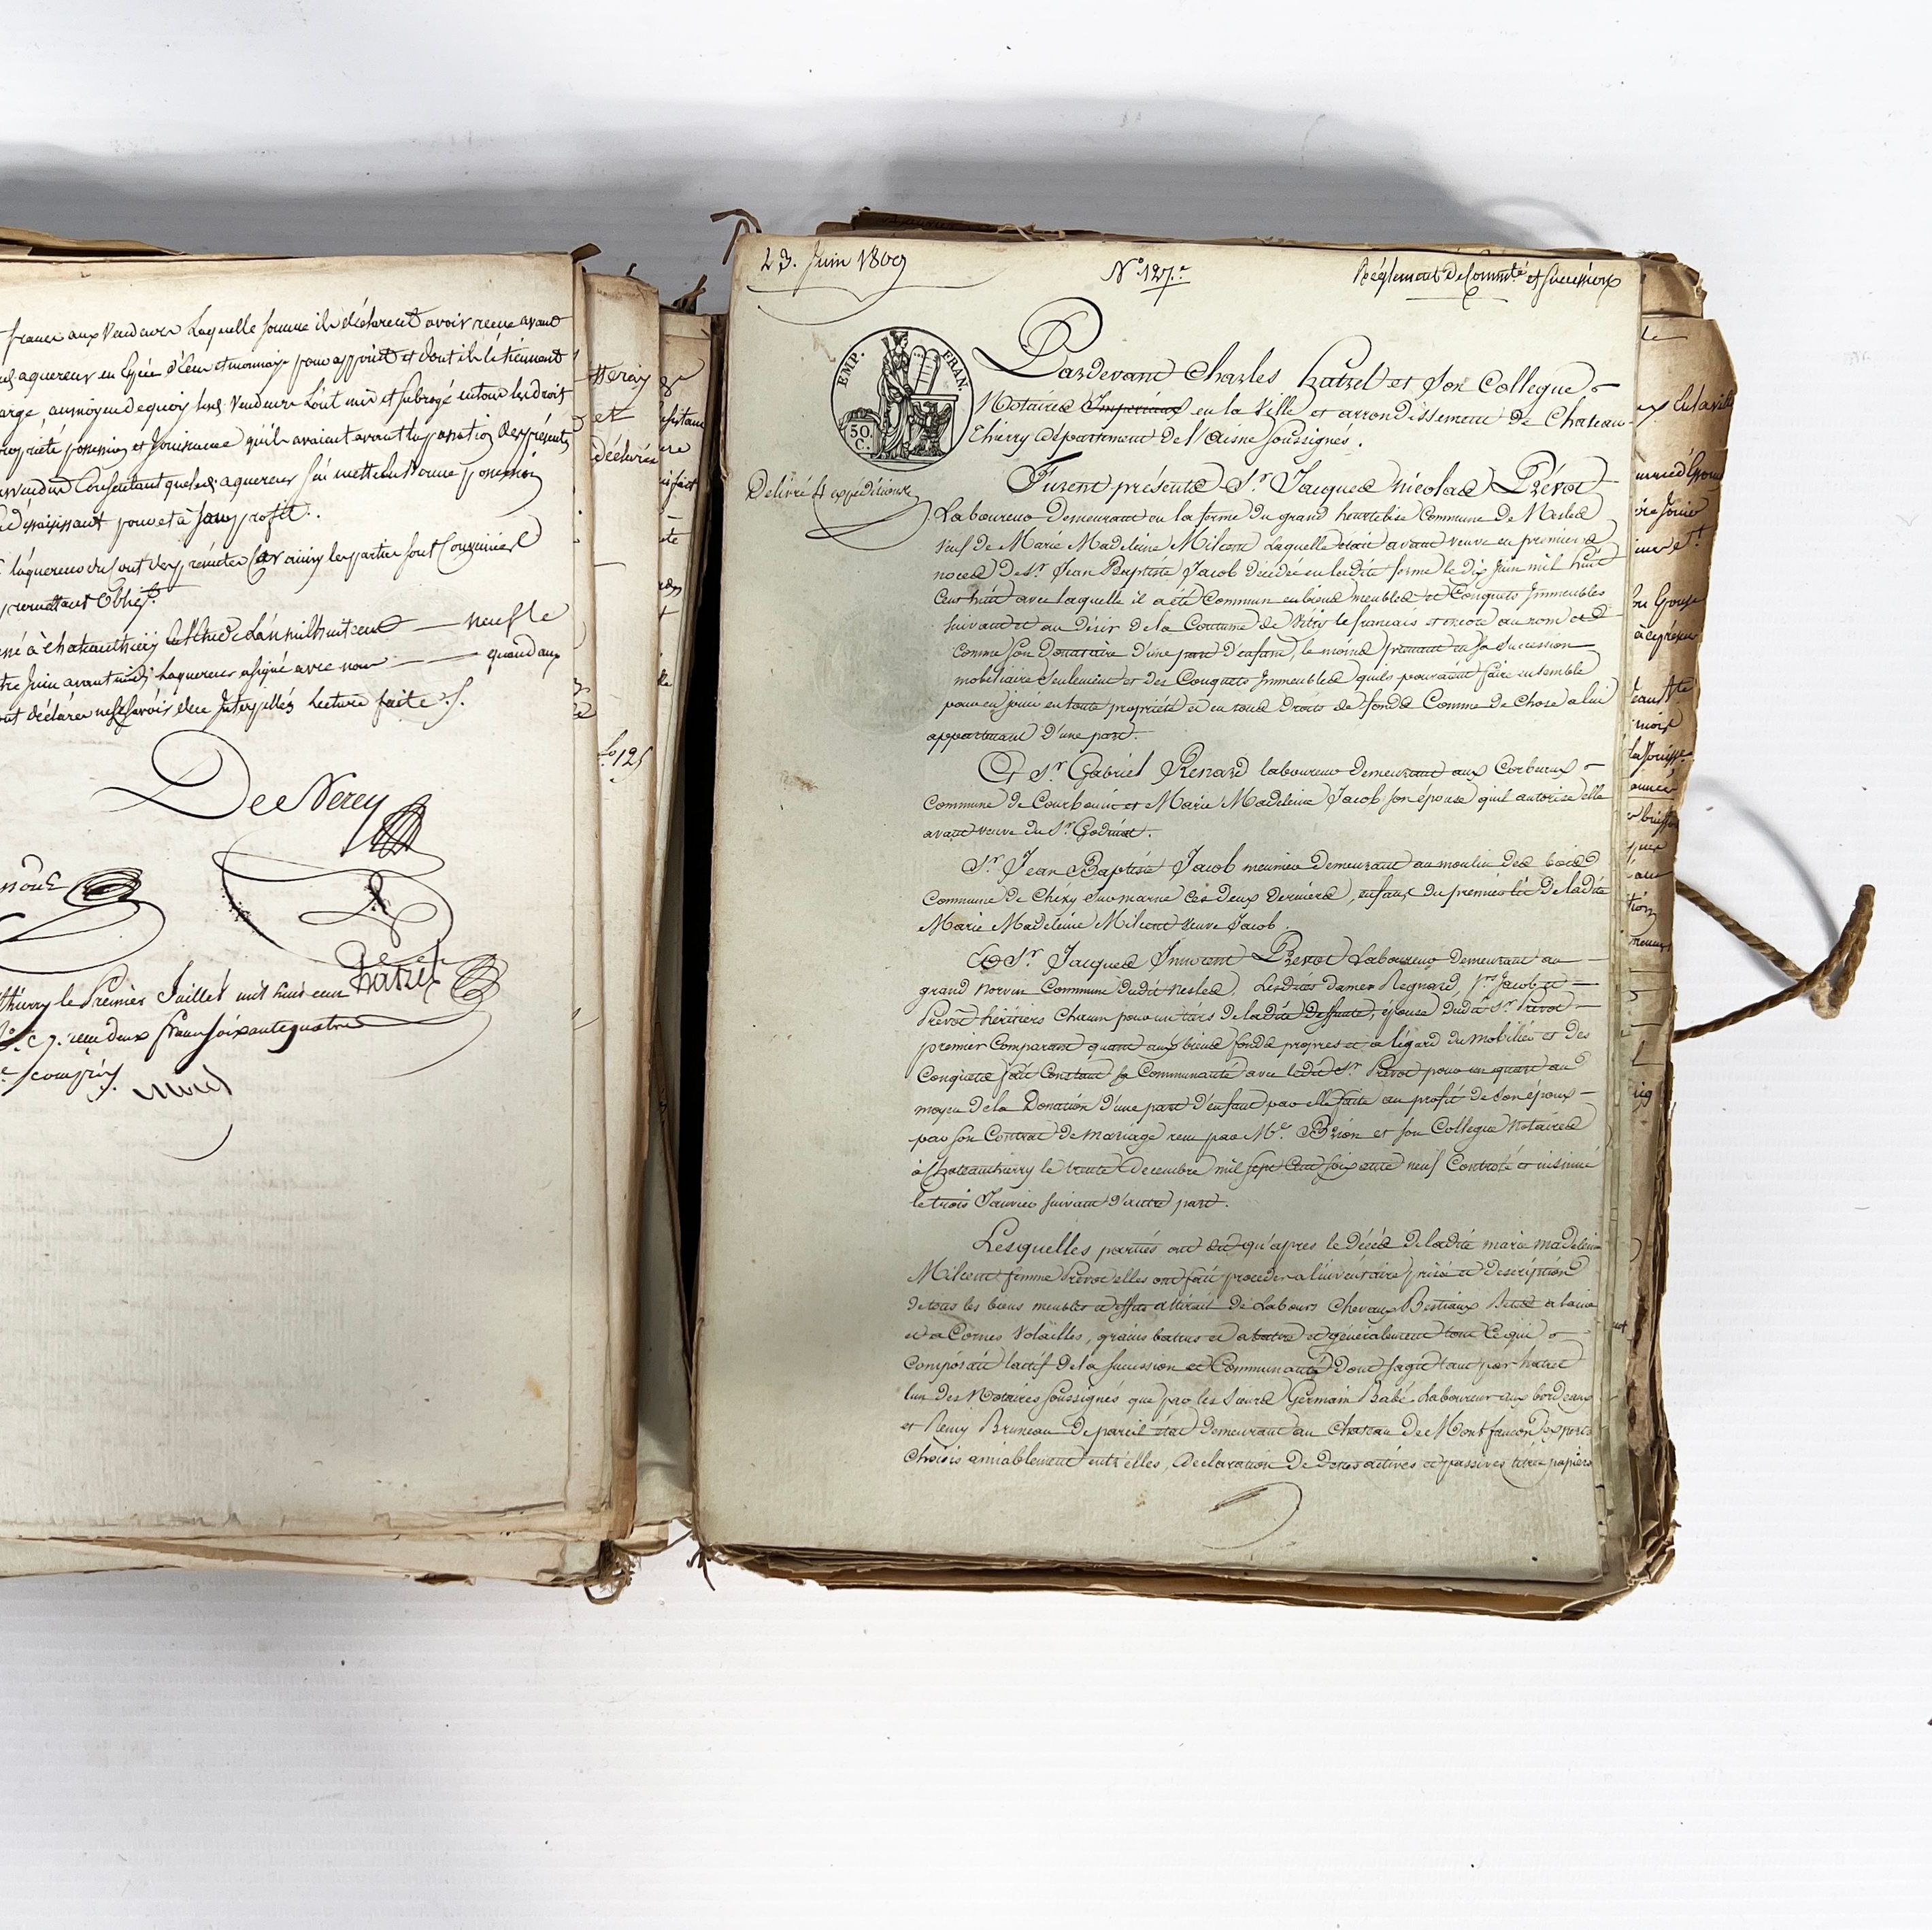 francs aux Vendeurs Laquelle somme ils déclarent avoir reçue avant
aquereur en Espèce d'Ecus et monnoye pour appoint et dont ils le tiennent
au moyen de quoy lesd. Vendeurs l'ont mis et subrogé en tous les droits
propriété possession et Jouissance qu'ils avaient avant la passation des présentes
Consentant que led. aquereur s'en mette en bonne possession
pour et à son profit.
l'aquereur du Cout des présentes Car ainsy les parties sont Convenues
promettant Oblig.t
à Chateauthiery L'an mil huit cent — neuf le
Juin avant midi L'aquereur a signé avec nous — quand aux
ont déclaré ne le savoir de ce Interpellés Lecture faite
DeeNerey
hatzel
thierry le Premier Juillet mil huit cent
reçu deux francs soixante quatre
c. compris.
et
No 125
23. Juin 1809
No 127.e
Réglement de Commté et Succession
EMP. FRAN.
50 C.
Pardevant Charles hatzel et Son Collegue
Notaires Imperiaux en la Ville et arrondissement de Chateau-
Thierry département de l'Aisne Soussignés.
Delivré 4 expéditions
Furent présents Sr. Jacques Nicolas Prévot
Laboureur demeurant en la ferme du grand heurtebise Commune de Nesles
Veuf de Marie Madeleine Milcent Laquelle était avant veuve en premieres
noces de Sr. Jean Baptiste Jacob décédée en ladite ferme le dix Juin mil huit
Cent huit avec laquelle il a été Commun en biens meubles et Conquets Immeubles
suivant et au Désir de la Coutume de Vitry le français et encore au nom et
Comme son Donataire d'une part d'enfant, le moins prenant en sa succession
mobiliaire Seulement et des Conquets Immeubles qu'ils pourraient faire ensemble
pour en jouir en toute propriété et en tous Droits de fonds Comme de Chose a lui
appartenant d'une part.
Et Sr. Gabriel Renard laboureur demeurant aux Corbeaux
Commune de Courboin et Marie Madeleine Jacob son épouse qu'il autorise elle
avant veuve du Sr. Godinot.
Sr. Jean Baptiste Jacob meunier demeurant au moulin des bois
Commune de Chézy Sur marne Ces deux derniers, enfans du premier lit de ladite
Marie Madeleine Milcent veuve Jacob.
Et Sr. Jacques Innocent Prevot Laboureur demeurant au
grand Norvin Commune dudit nesles, Lesdits dames Regnard, Srs Jacob et
Prévot héritiers Chacun pour un tiers de ladite Deffunte, épouse dudit Sr. Prévot
premier Comparant quant aux biens fonds propres et a légard du mobilier et des
Conquets fait Constant sa Communauté avec ledit Sr. Prévot pour un quart au
moyen de la Donation d'une part d'enfant par elle faite au profit de son époux
par son Contrat de mariage reçu par Me. Brion et son Collegue Notaires
à Chateauthierry le trente decembre mil sept Cent soixante neuf Controlé et insinué
le trois Janvier suivant d'autre part.
Lesquelles parties ont dit qu'apres le Décès de ladite marie madeleine
Milcent femme Prévot elles ont fait proceder a linventaire prisée et description
de tous les biens meubles et effets attirail de Labours Chevaux Bestiaux Betes a laine
et a Cornes Volailles, grains battus et a battre et généralement tout Ce qui
Composait lactif de la succession et Communauté dont sagit tant par hatzel
lun des Notaires soussignés que par les Sieurs Germain Babé Laboureur aux bordeaux
et Remy Bruneau de pareil état demeurant au Chateau de Montfaucon experts
Choisis amiablement entr'elles, Declaration de Dettes actives et passives titres papiers